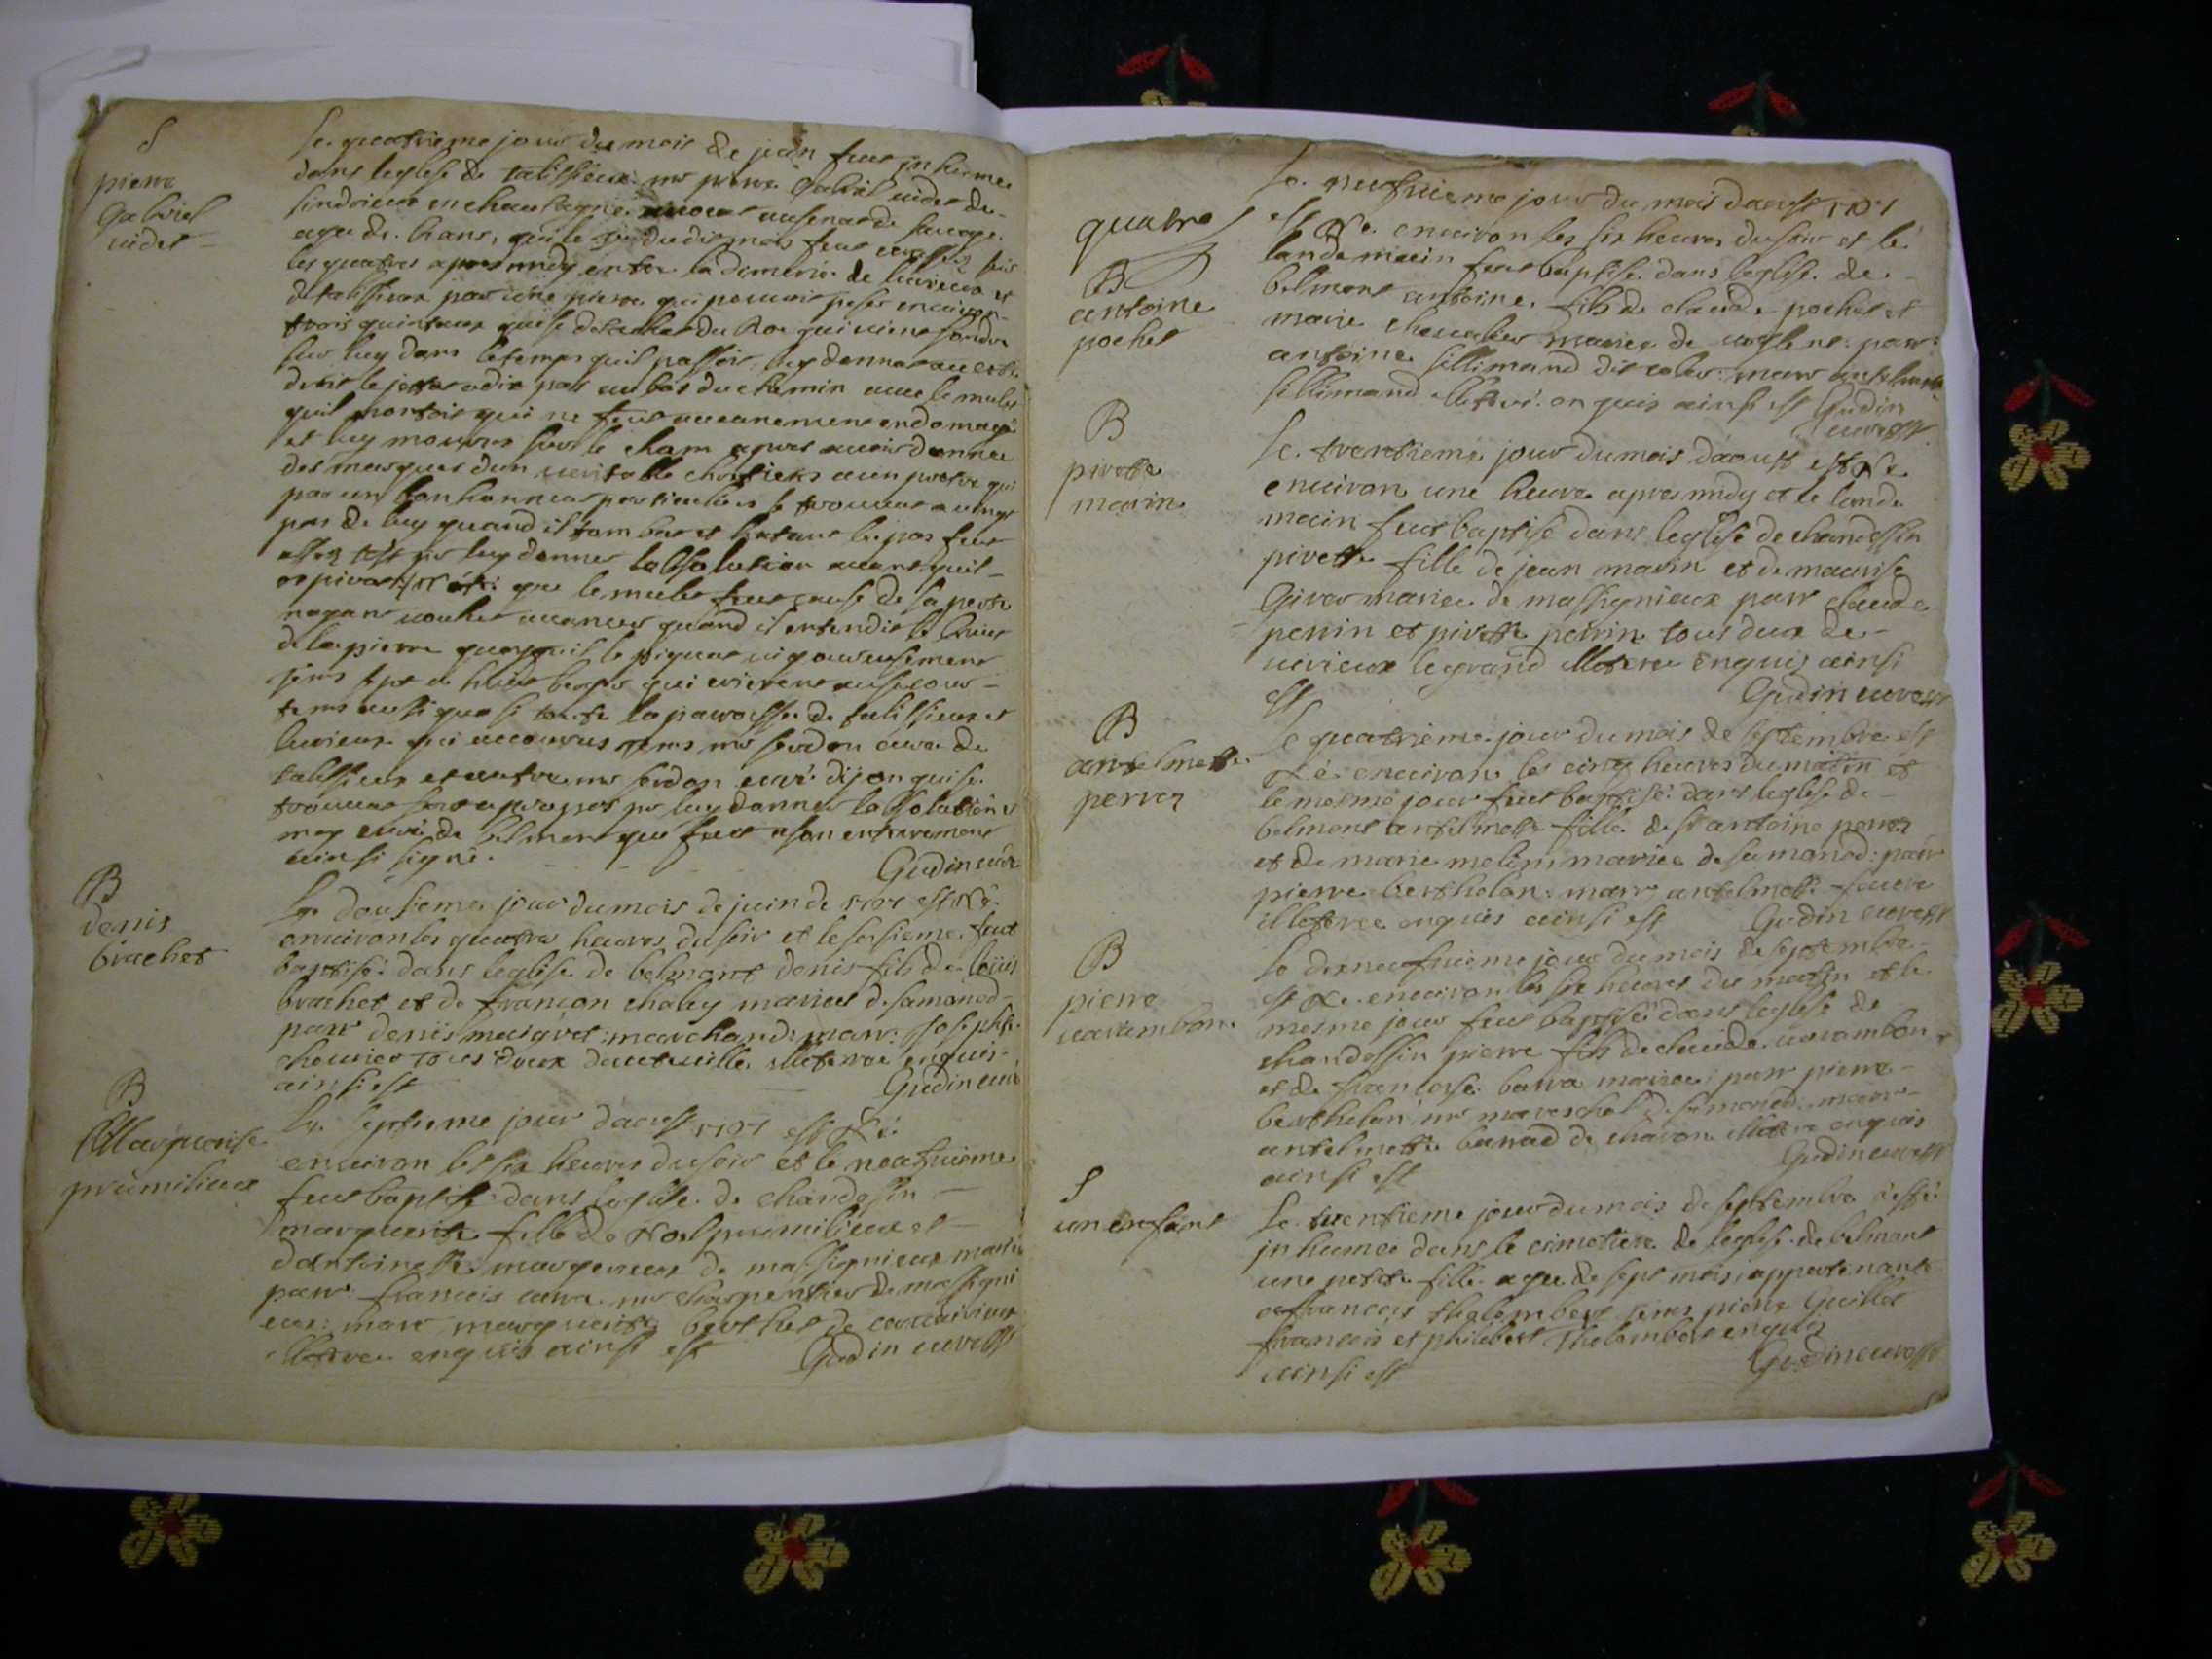 S
pierre
Gabriel
videt
le quatrieme jour du mois de juin feut inhumé
dans leglise de talissieux mr pierre Gabriel videt de
sindrieux en chautagne
agé de ans, qui le dudit mois feut
les quatres apres midy entre la dimerie de luirieux et
de talissieux par une pierre qui pouvoit peser environ
trois quintaux qui se detachat du Roc qui vient fondre
sur luy dans le temps quil passoit luy donnat au coste
droit le jetta adix pas au bas du chemin avec le mulet
quil montoit qui ne feut aucunement endomagé
et luy mourut sur le cham apres avoir donné
des marques dun veritable chrestiens a un prestre qui
par un bonhonneur particulier se trouvat a vingt
pas de luy quand il tombat et hatant le pas feut
assez tost pr luy donner labsolution avant quil
expirat que le mulet feut cause de sa perte
nayant voulut avancer quand il entendit le bruit
de la pierre quoyquil le piquat vigoureusement
tems sept a huict bergers qui vierent au secours
tems aussi quasi toute la paroisse de talissieux et
luirieux qui accourus tems mr serdon curé de
talissieux et autre mr serdon curé dijon qui se
trouvat fort apropos pr luy donner labsolution et
moy curé de belmont qui feut a son enterrement
ainsi signé. Gudin curé
B
denis
brachet
Le dousieme jour du mois de juin de 1701 est Né
environ les quatres heures du soir et le sesieme feut
baptisé dans leglise de belmont denis fils de loüis
brachet et de françon chaley mariés de samonod
parr denis maigret marchand marr josephte
chevrier tous deux dautreville illeterree enquis
ainsi est Gudin curé
B
Marguerite
prumilieux
Le septieme jour daoust 1701 est Né
environ les six heures du soir et le neufvieme
feut baptisé dans leglise de chandossin
marguerite fille de Noel prumilieux et
dantoinette de massignieux mariés
parr francois cura mr charpentier de massigni
eux marr marguerite berthet de
illeterree enquis ainsi est Gudin curé asst
quatre
B
antoine
pochet
le neufvieme jour du mois daoust 1701
est Né environ les six heures du soir et le
landemain feut baptisé dans leglise de
belmont antoine fils de claude pochet et
marie chevalier mariés de voglent parr
antoine sillimand dit marr anthelmette
sillimand illeteré enquis ainsi est Gudin
curé asst
B
pirette
marin
le trentieme jour du mois daoust est Né
environ une heure apres midy et le lande
main feut baptisé dans leglise de chandossin
pirette fille de jean marin et de maurise
Givet mariés de massignieux parr claude
perrin et pirette perrin tous deux de
virieux le grand illeteree enquis ainsi
est Gudin curé asst
B
antelmette
perret
le quatrieme jour du mois de septembre est
Né environ les cinq heures du matin et
le mesme jour feut baptisé dans leglise de
belmont antelmette fille de sr antoine perret
et de marie molin mariés de samonod parr
pierre berthelon marr antelmette
illeteree enquis ainsi est Gudin curé asst
B
pierre
varambon
le dixneufvieme jour du mois de septembre
est Né environ les six heures du matin et le
mesme jour feut baptisé dans leglise de
chandossin pierre fils de claude varambon
et de francoise barra mariés parr pierre
berthelon mr mareschal de samonod marr
antelmette de charon illetere enquis
ainsi est Gudin curé asst
S
un enfant
le trentieme jour du mois de septembre a esté
inhumée dans le cimetiere de leglise de belmont
une petite fille agée de sept mois appartenante
a francois thelembert tems pierre Guillot
francois et philibert thelembert enquis
ainsi est Gudin curé asst